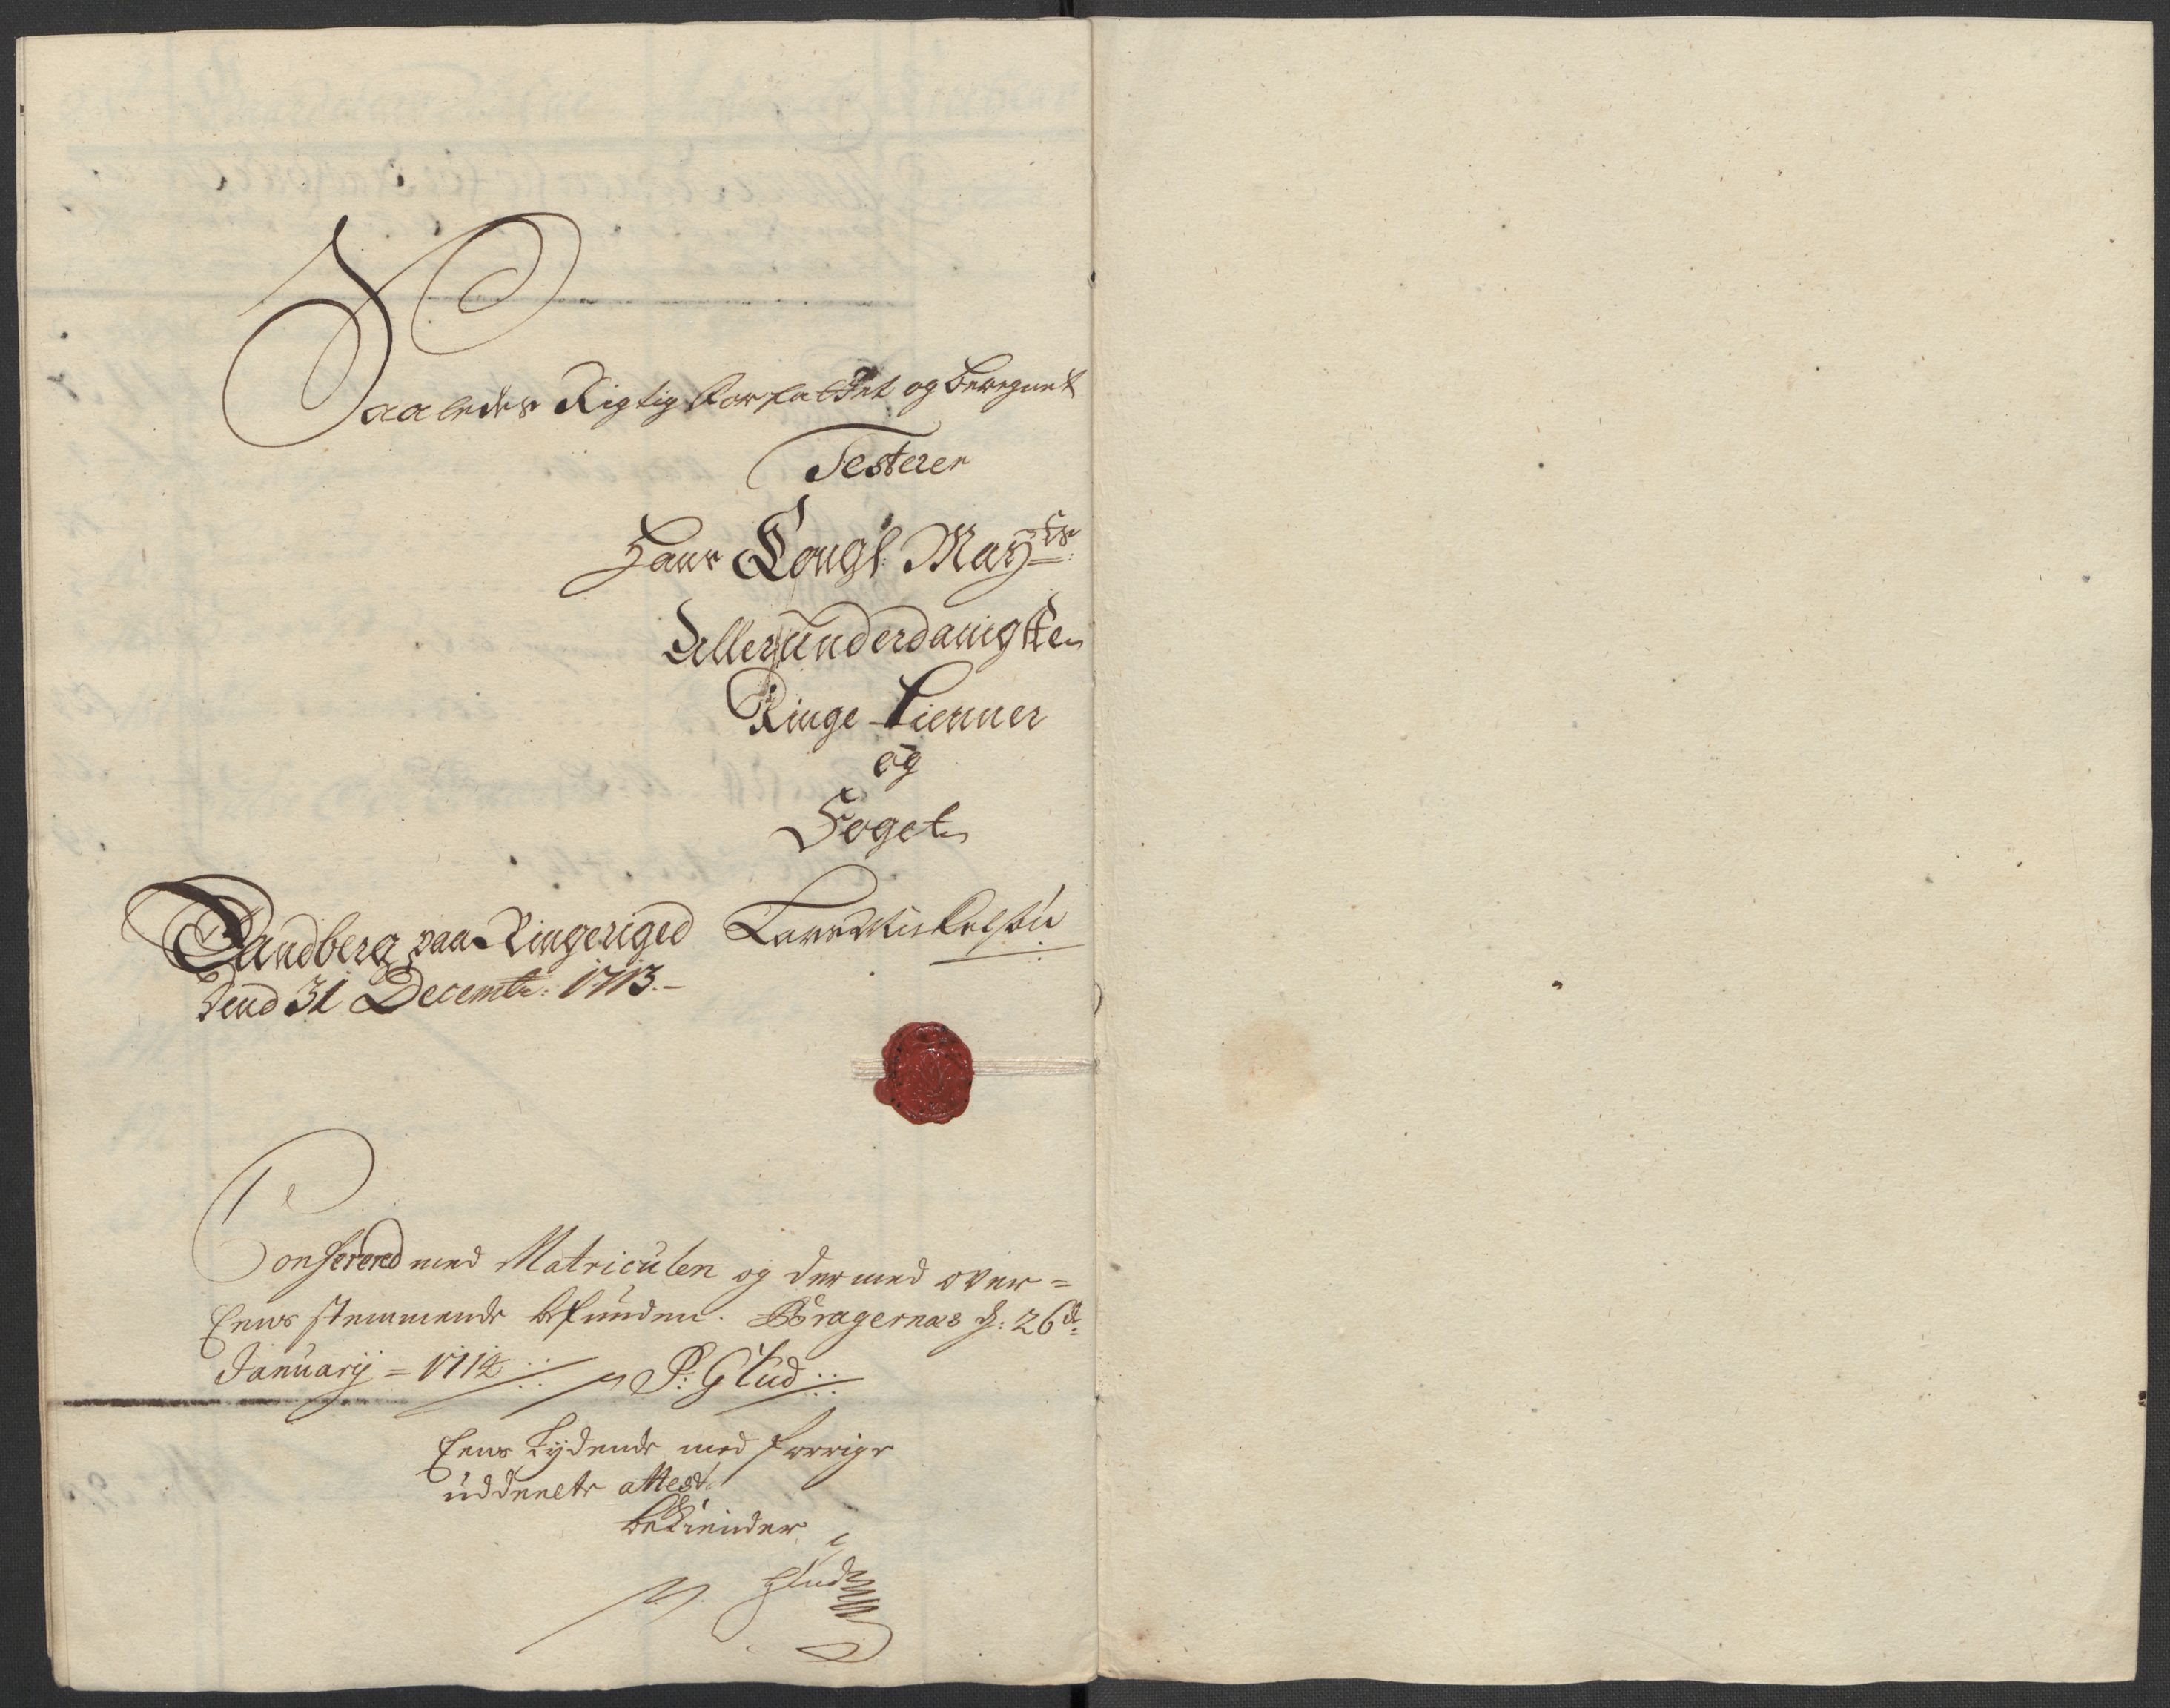 Saaledes Rigtig forfattet og beregnet
Testerer
Hans Kongl: May:ts
Allerunderdanigste
Ringe tienner
og
Foget
Sandberg paa Ringeriged Lars Mickelsen
dend 31 Decembr: 1713.–
Conferered med Matriculen og dermed over=
Eens stemmende befunden. Bragernæs d: 26de
Januarij = 1714 P: Glud
Eens Lydende med forrige
uddeelte attest
bekiender
P. Glud